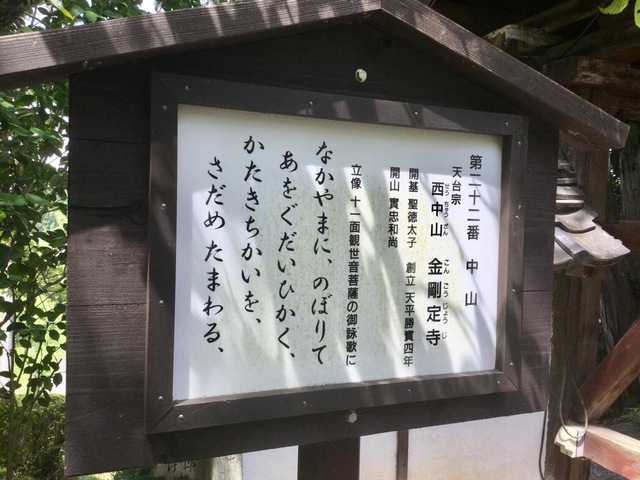 第二十二番 中山
天台宗
西中山 金剛定寺
せい ちゅう ざん こん ごう じょう じ
開基 聖徳太子 創立 天平勝寶四年
開山 實忠和尚
立像 十一面観世音菩薩の御詠歌に
なかやまに、のぼりて
あをぐだいひかく、
かたきちかいを、
さだめたまわる、